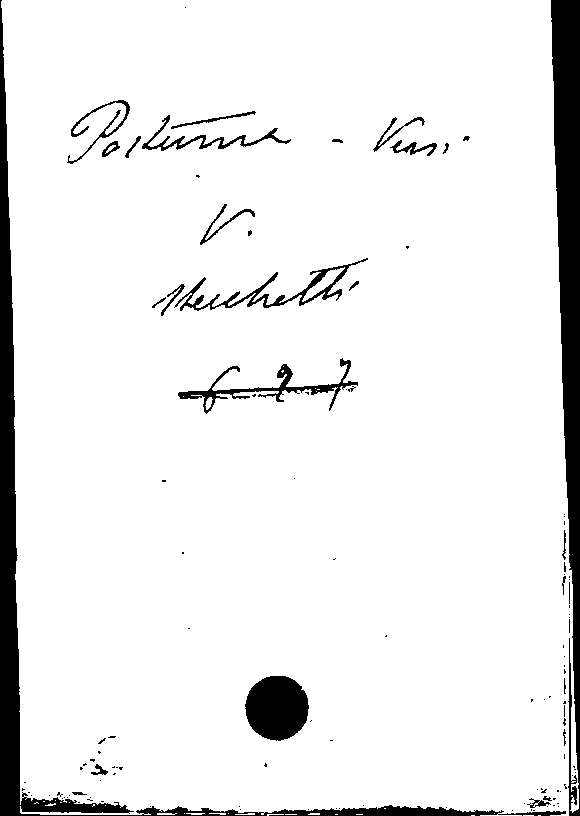 Postuma - Versi
V.
Stecchetti
697